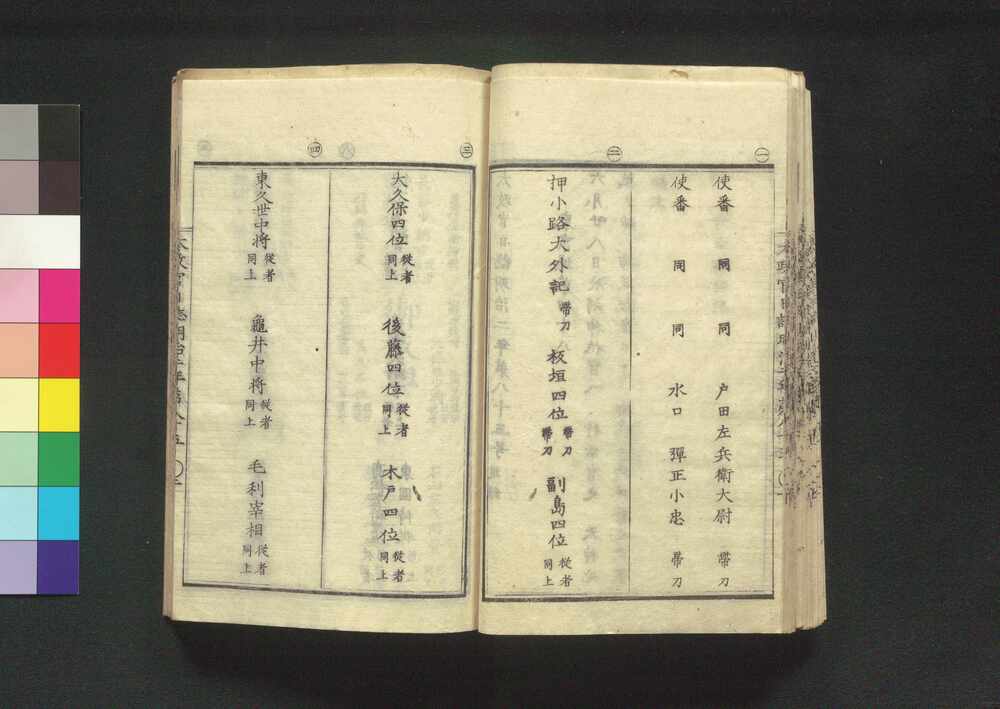 ㊀
使番 同 同 戸田左兵衛大尉 帯刀
使番 同 同 水口 彈正小忠 帶刀
㊁
押小路大外記 帶刀 板垣四位 帶刀 帶刀 副島四位 従者 同上
㊂
大久保四位 従者 同上 後藤四位 従者 同上 木戸四位 従者 同上
㊃
東久世中将 従者 同上 龜井中将 従者 同上 毛利宰相 従者 同上